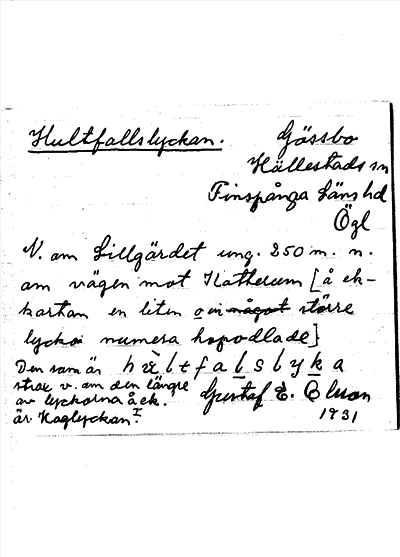 Hultfallslyckan.
Gössbo
Hällestads sn
Finspånga läns hd
Ögl
N. om Lillgärdet ung. 250 m. n.
om vägen mot Katherum [å ek-
kartan en liten o en något större
lycka numera hopodlade]
Den som är
strax v. om den längre
av lyckorna å ek.
är Kaglyckan I.
Gustaf E. Elwon
1931